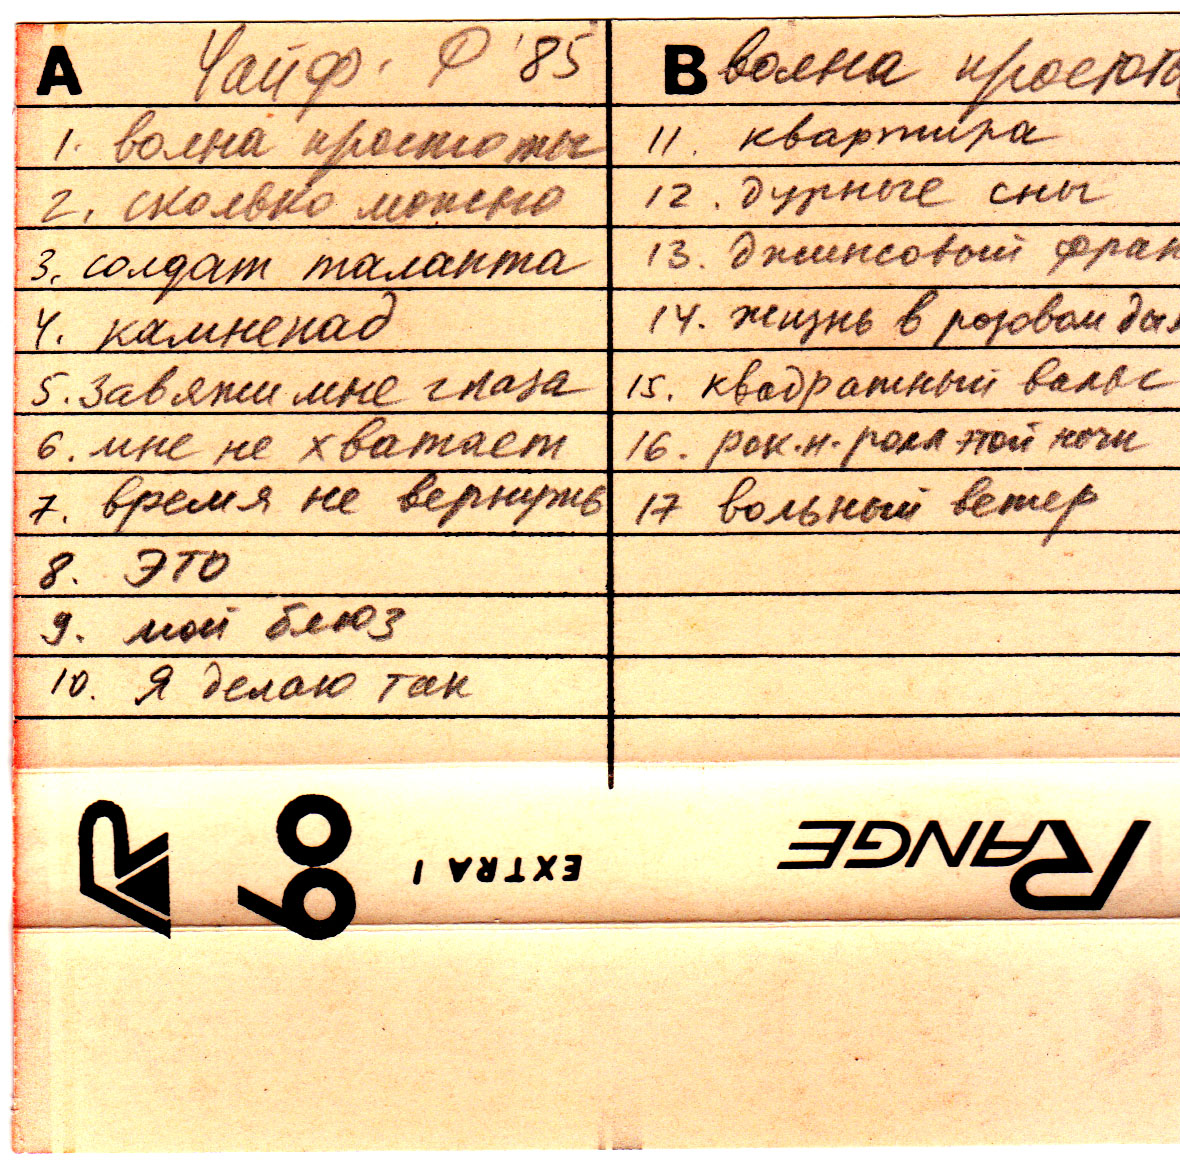 A Чайф. Ф '85
1. волна простоты
2. сколько можно
3. солдат таланта
4. камнепад
5. Завяжи мне глаза
6. мне не хватает
7. время не вернуть
8. ЭТО
9. мой блюз
10. Я делаю так
B волна простоты
11. квартира
12. дурные сны
13. джинсовый фран
14. жизнь в розовом ды
15. квадратный вальс
16. рок-н-ролл этой ночи
17 вольный ветер
60
EXTRA I
RANGE